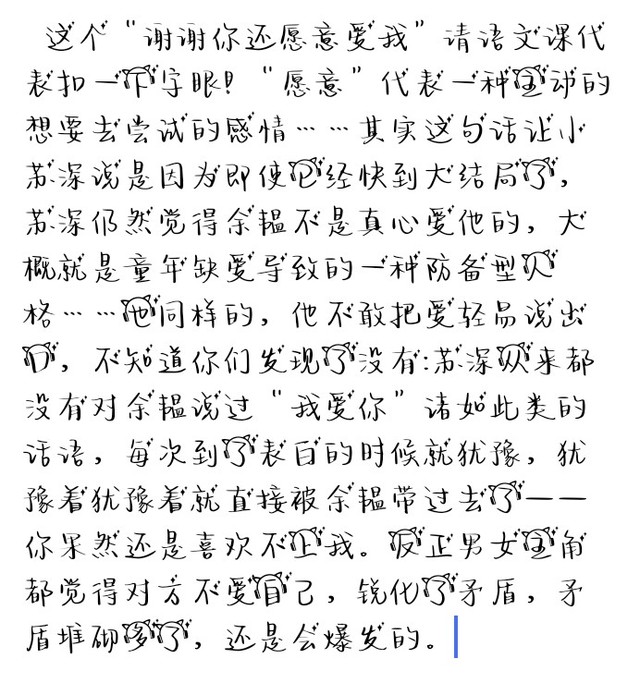 这个“谢谢你还愿意爱我”请语文课代
表扣一下字眼！“愿意”代表一种主动的
想要去尝试的感情……其实这句话让小
苏深说是因为即使已经快到大结局了，
苏深仍然觉得余韫不是真心爱他的，大
概就是童年缺爱导致的一种防备型人
格……也同样的，他不敢把爱轻易说出
口，不知道你们发现了没有：苏深从来都
没有对余韫说过“我爱你”诸如此类的
话语，每次到了表白的时候就犹豫，犹
豫着犹豫着就直接被余韫带过去了——
你果然还是喜欢不上我。反正男女主角
都觉得对方不爱自己，锐化了矛盾，矛
盾堆砌多了，还是会爆发的。